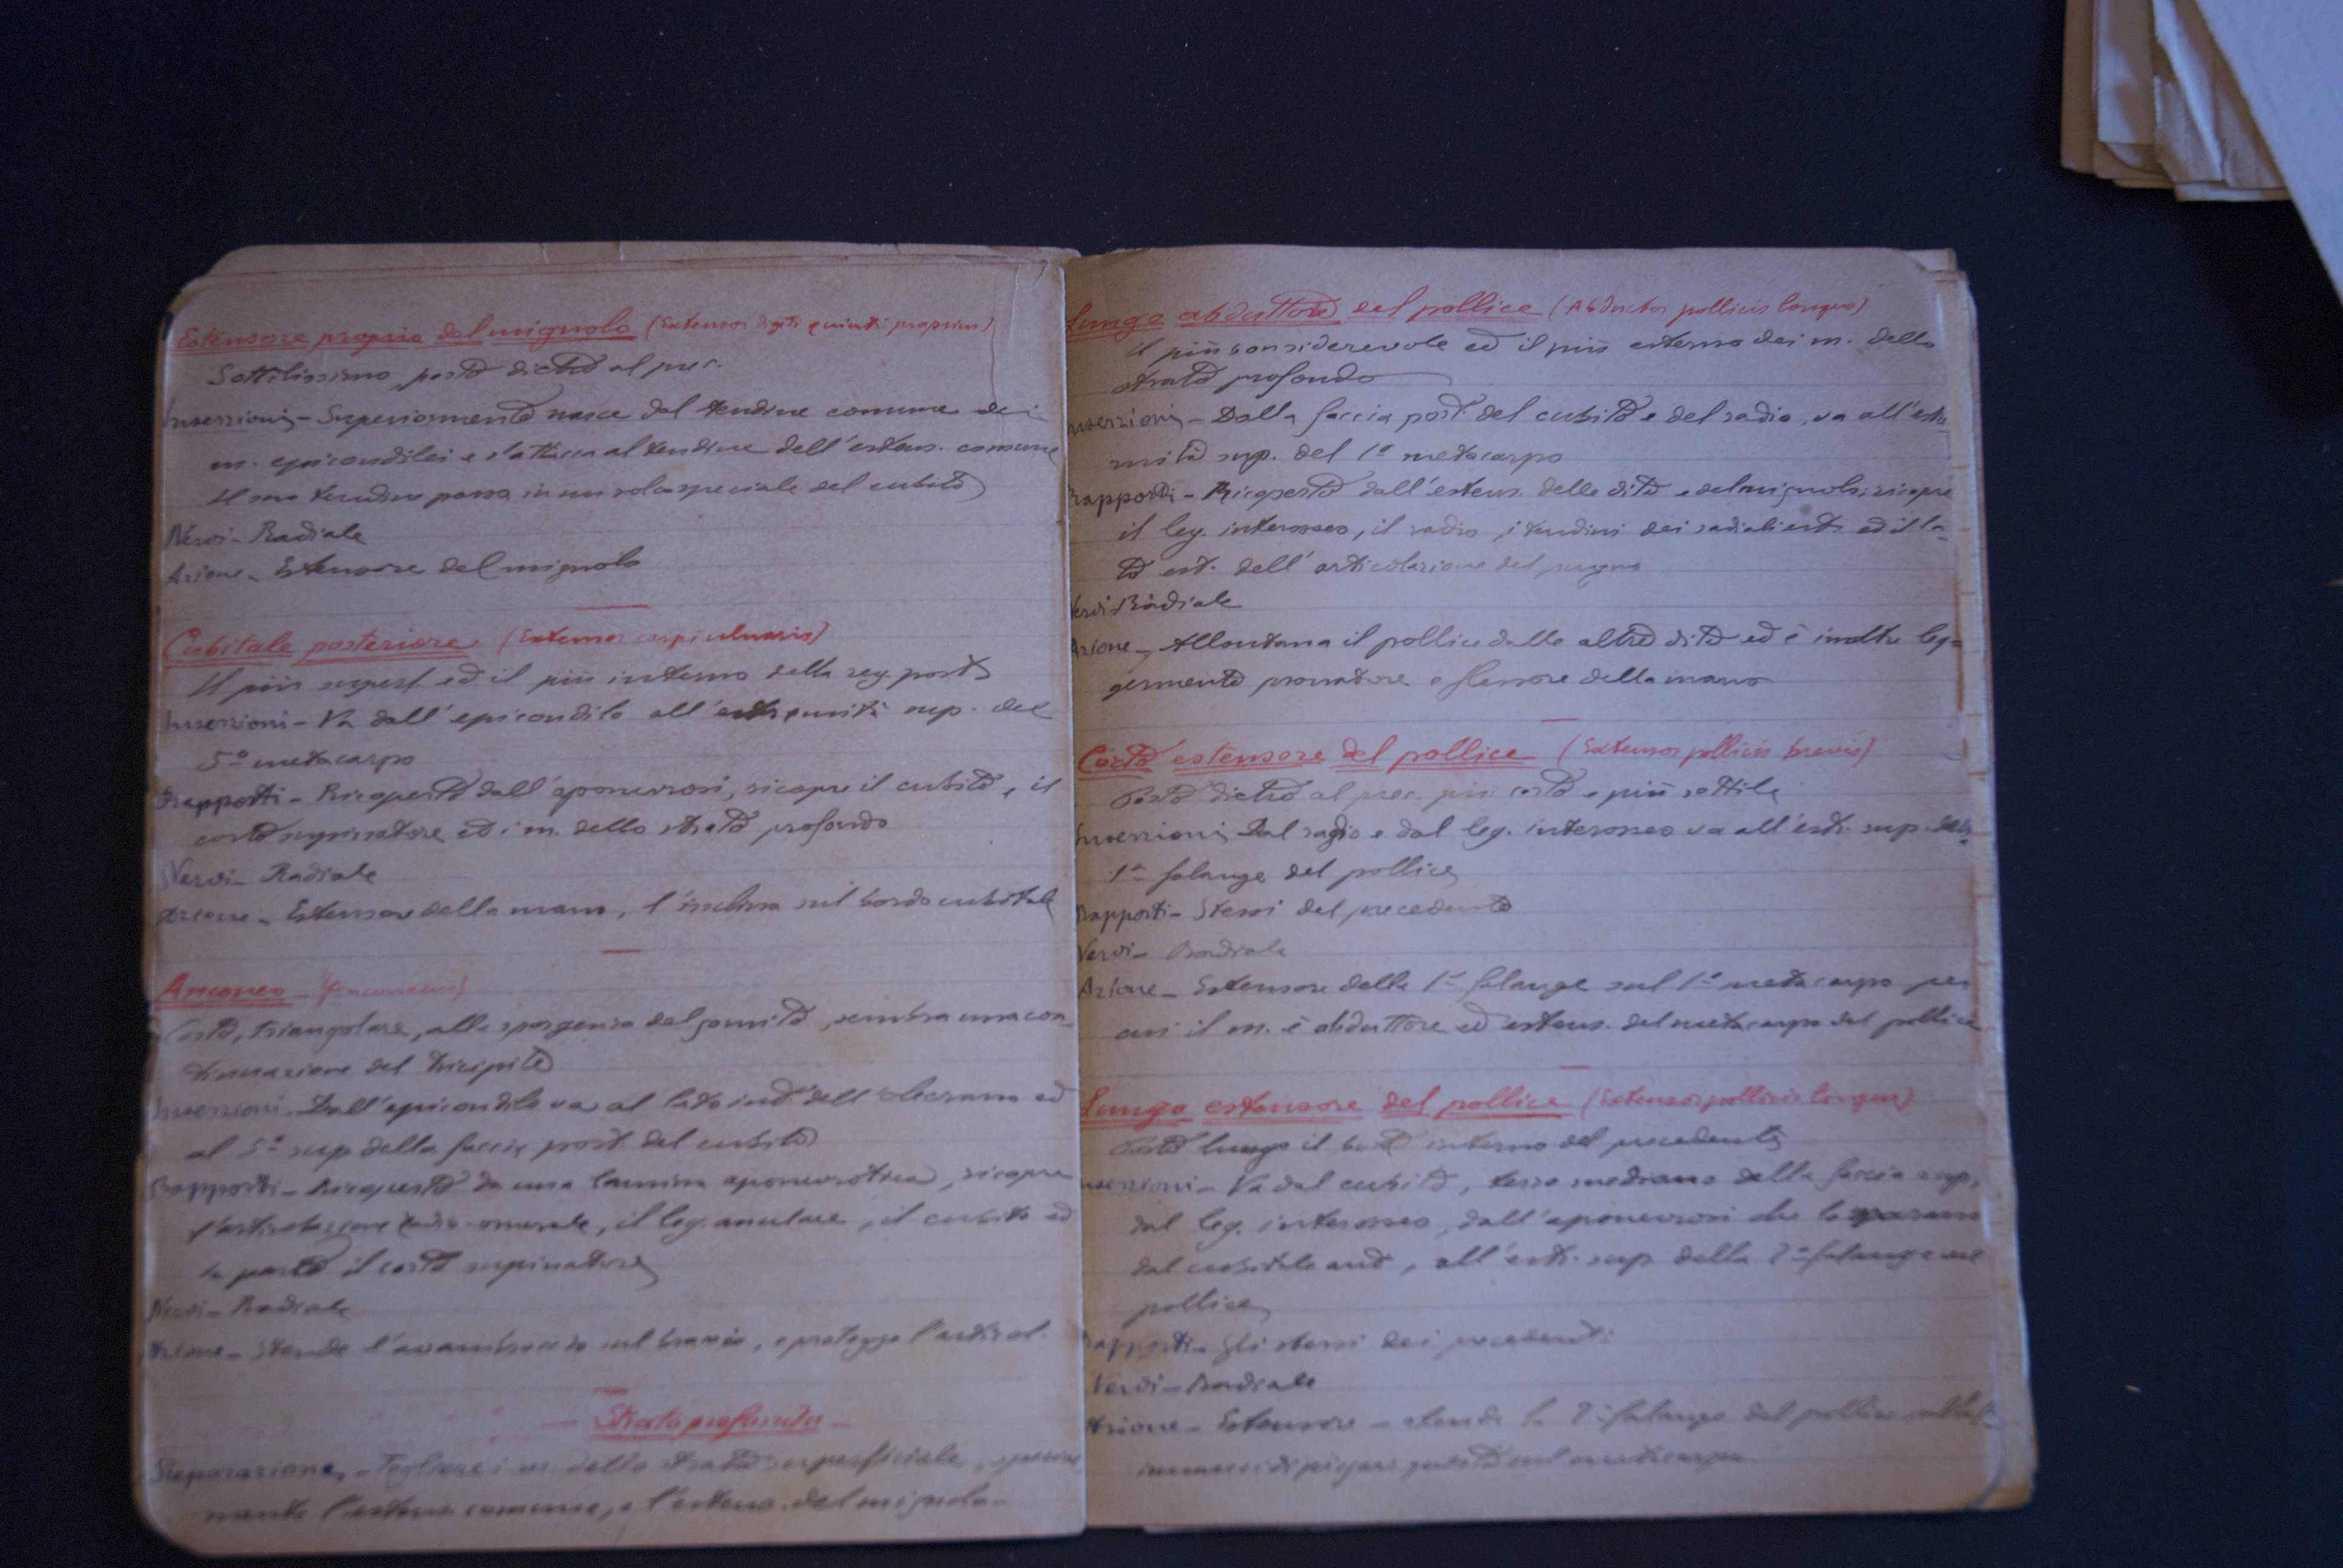 Estensore proprio del mignolo (Extensor digiti quinti proprius)
Sottilissimo, posto dietro al prec.
Inserzioni - Superiormente nasce dal tendine comune dei
m. epicondilei e s'attacca al tendine dell'estens. comune
Il suo tendine passa in un solco speciale del cubito
Nervi - Radiale
Azione - Estensore del mignolo
Cubitale posteriore (Extensor carpi ulnaris)
Il più superf. ed il più interno della reg. post.
Inserzioni - Va dall'epicondilo all'estremità sup. del
5º metacarpo
Rapporti - Ricoperto dall'aponevrosi, ricopre il cubito, il
corto supinatore ed i m. dello strato profondo
Nervi - Radiale
Azione - Estensore della mano, l'inclina sul bordo cubitale
Anconeo - (Anconaeus)
Corto, triangolare, alla sporgenza del gomito, sembra una con-
tinuazione del tricipite
Inserzioni - Dall'epicondilo va al lato int. dell'olecrano ed
al 5º sup. della faccia post. del cubito
Rapporti - Ricoperto da una lamina aponevrotica, ricopre
l'articolazione radio-omerale, il leg. anulare, il cubito ed
in parte il corto supinatore
Nervi - Radiale
Azione - Stende l'avambraccio sul braccio, e protegge l'articol.
- Strato profondo -
Preparazione - Togliere i m. dello strato superficiale, special
mente l'estens. comune, e l'estens. del mignolo -
Lungo abduttore del pollice (Abductor pollicis longus)
Il più considerevole ed il più esterno dei m. dello
strato profondo
Inserzioni - Dalla faccia post. del cubito e del radio, va all'estre
mità sup. del 1º metacarpo
Rapporti - Ricoperto dall'estens. delle dita e del mignolo; ricopre
il leg. interosseo, il radio, i tendini dei radiali est. ed il la-
to est. dell'articolazione del pugno
Nervi - Radiale
Azione - Allontana il pollice dalle altre dita ed è inoltre leg-
germente pronatore e flessore della mano
Corto estensore del pollice (Extensor pollicis brevis)
Posto dietro al prec. più corto e più sottile
Inserzioni Dal radio e dal leg. interosseo va all'estr. sup. della
1ª falange del pollice
Rapporti - Stessi del precedente
Nervi - Radiale
Azione - Estensore della 1ª falange sul 1º metacarpo per
cui il m. è abduttore ed estens. del metacarpo del pollice
Lungo estensore del pollice (Extensor pollicis longus)
Posto lungo il bordo interno del precedente
Inserzioni - Va dal cubito, terzo mediano della faccia sup.,
dal leg. interosseo, dall'aponevrosi che lo
dal cubitale ant., all'estr. sup. della 2ª falange del
pollice
Rapporti - Gli stessi dei precedenti
Nervi - Radiale
Azione - Estensore - stende la 2ª falange del pollice sulla 1ª
innanzi di piegare questa sul metacarpo